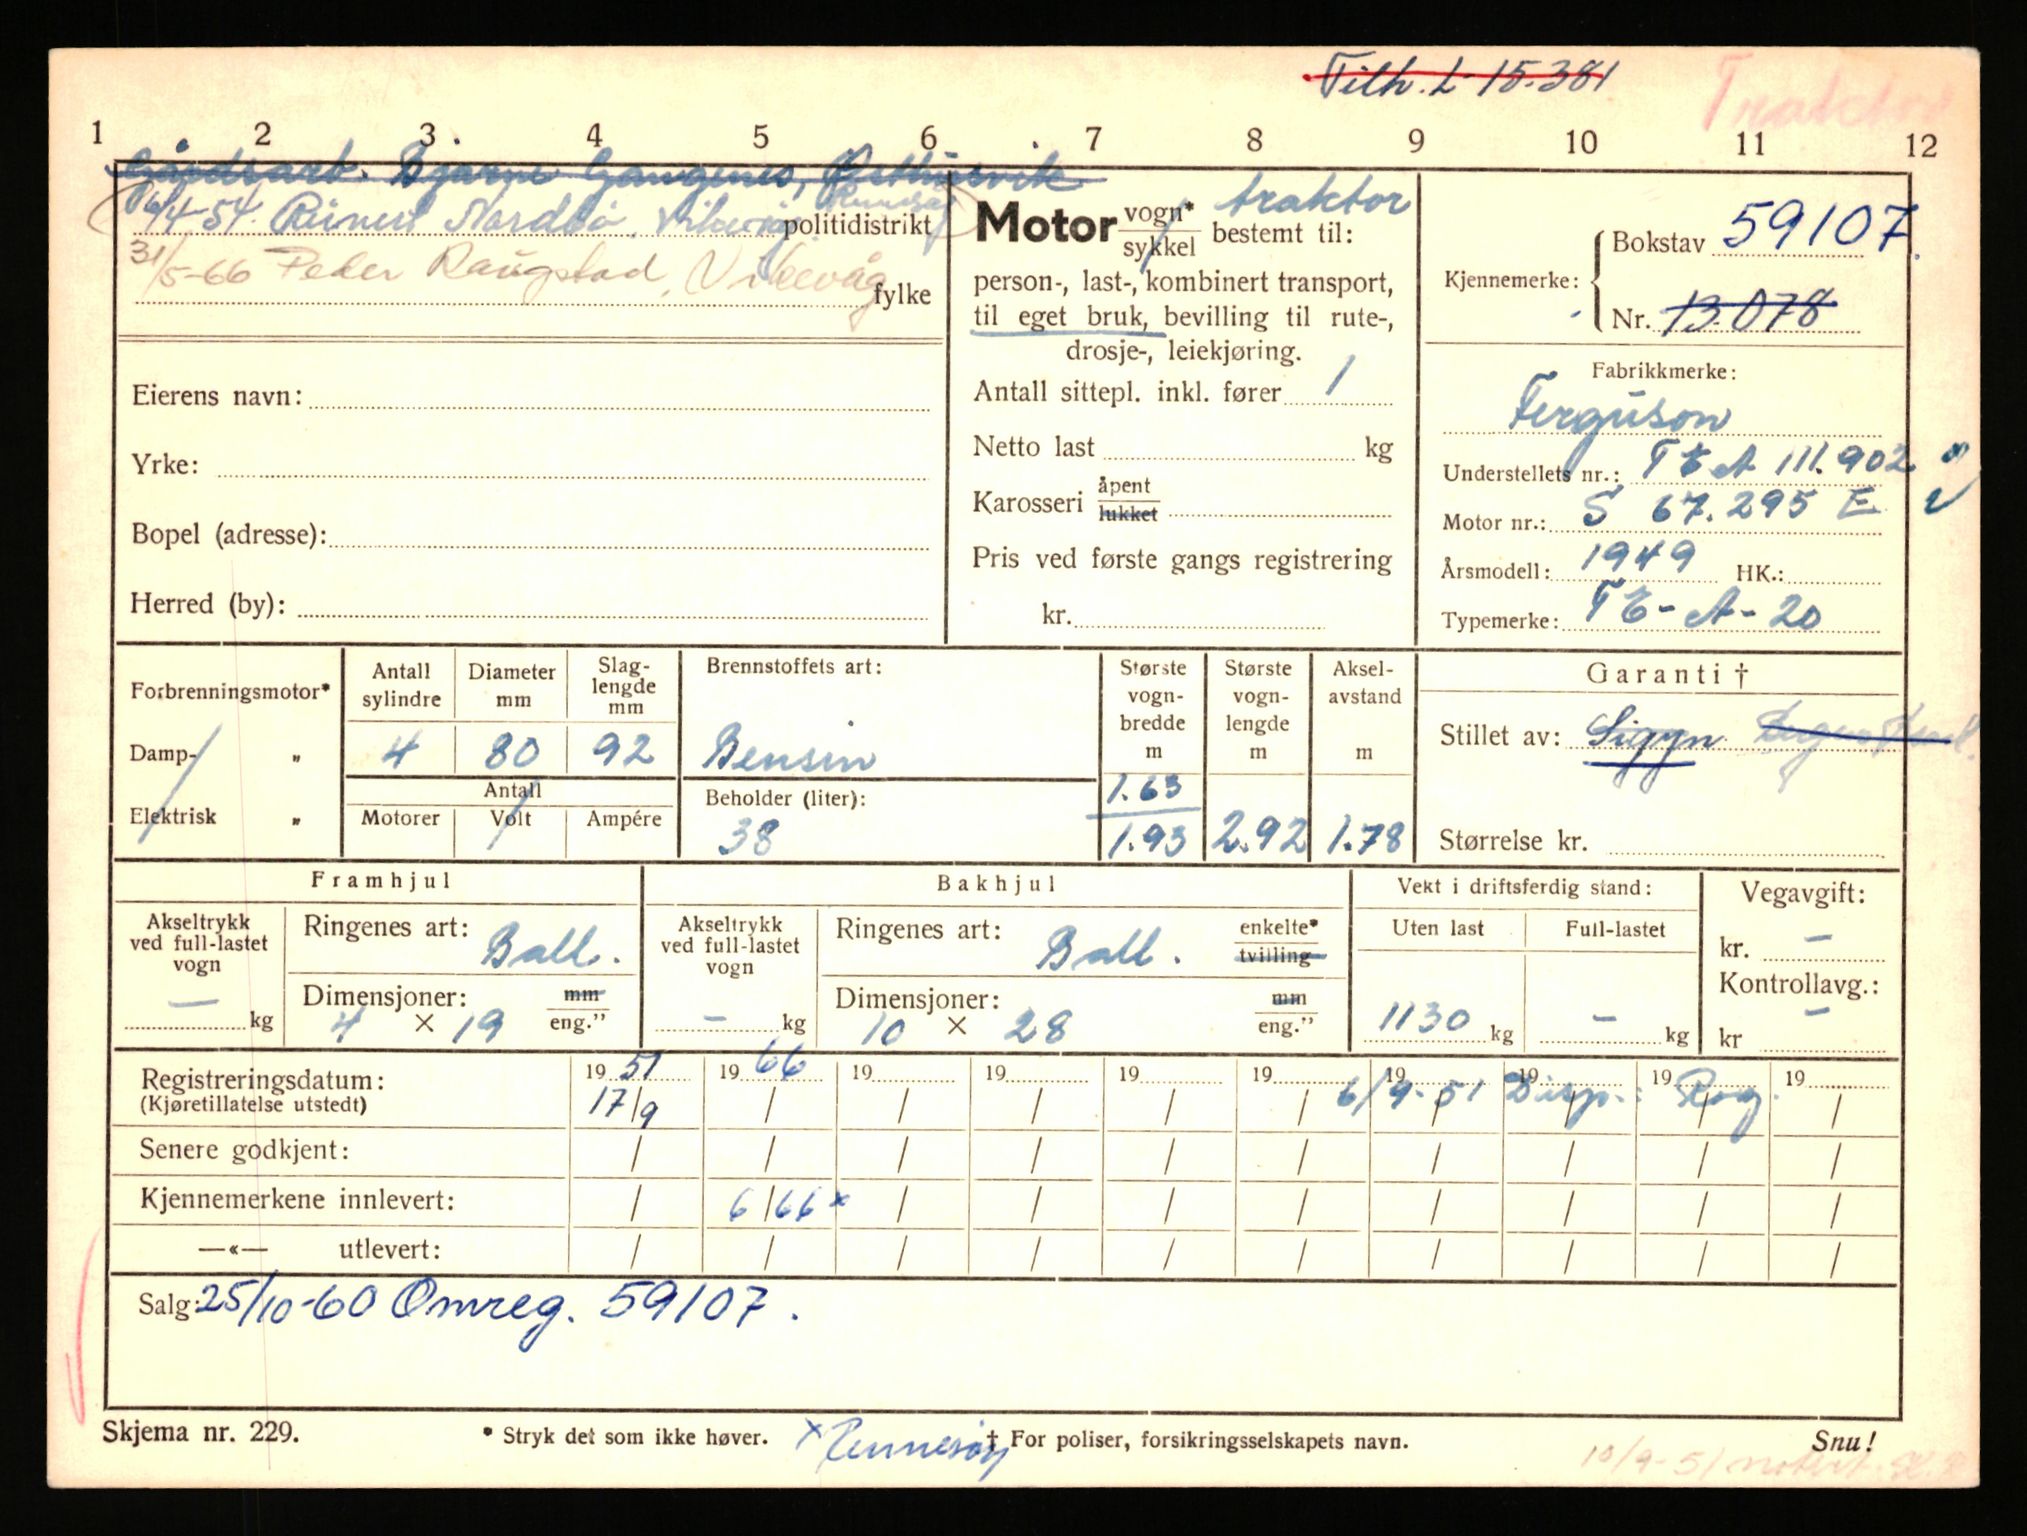 Tilh. L-15.381
Traktor
1 2 3 4 5 6 7 8 9 10 11 12
Gårdsarb. Bjarne Gangenes, Østhusvik
6/4-54. Nordbø, Vikevåg politidistrikt Rennesøy
31/5-66 Peder Raugstad, Vikevåg fylke
Eierens navn:
Yrke:
Bopel (adresse):
Herred (by):
Motor vogn* / sykkel bestemt til: traktor
person-, last-, kombinert transport,
til eget bruk, bevilling til rute-,
drosje-, leiekjøring.
Antall sittepl. inkl. fører 1
Netto last kg
Karosseri åpent / lukket
Pris ved første gangs registrering
kr.
Kjennemerke: Bokstav 59107.
Nr. 13.078
Fabrikkmerke:
Ferguson
Understellets nr.: TEA 111.902
Motor nr.: S 67.295 E
Årsmodell: 1949 HK.:
Typemerke: TE-A-20
Forbrenningsmotor*
Damp- „
Elektrisk „
Antall sylindre 4
Diameter mm 80
Slaglengde mm 92
Antall
Motorer Volt Ampére
Brennstoffets art:
Bensin
Beholder (liter):
38
Største vogn-bredde m 1.63 1.93
Største vogn-lengde m 2.92
Aksel-avstand m 1.78
Garanti †
Stillet av: Sigyn
Størrelse kr.
Framhjul
Akseltrykk ved full-lastet vogn — kg
Ringenes art: Ball.
Dimensjoner: mm
4 × 19 eng.”
Bakhjul
Akseltrykk ved full-lastet vogn — kg
Ringenes art: Ball. enkelte* tvilling
Dimensjoner: mm
10 × 28 eng.”
Vekt i driftsferdig stand:
Uten last Full-lastet
1130 kg — kg
Vegavgift:
kr. —
Kontrollavg.:
kr —
Registreringsdatum: 19 51 19 66 19 19 19 19 19 19 19 19
(Kjøretillatelse utstedt) 17/9 / / / / / 6/9-51 Disp.: Rog.
Senere godkjent: / / / / / / / / / /
Kjennemerkene innlevert: / 6/66 x / / / / / / / /
—«— utlevert: / / / / / / / / / /
Salg: 25/10-60 Omreg. 59107.
Skjema nr. 229.
* Stryk det som ikke høver.
x Rennesøy
† For poliser, forsikringsselskapets navn.
Snu!
10/9-51 notert